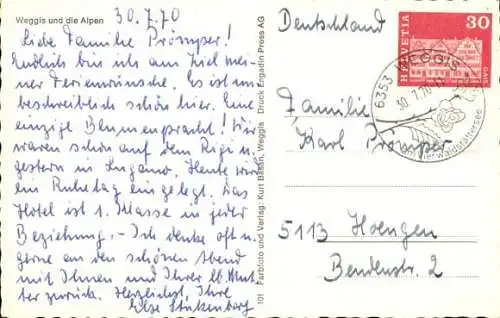 Weggis und die Alpen
30.7.70
Liebe Familie Prömper!
Endlich bin ich am Ziel mei-
ner Ferienwünsche. Es ist un-
beschreiblich schön hier. Eine
einzige Blumenpracht! Wir
waren schon auf dem Rigi u.
gestern in Lugano. Heute wird
ein Ruhetag eingelegt. Das
Hotel ist 1. Klasse in jeder
Beziehung. - Ich denke oft u.
gerne an den schönen Abend
mit Ihnen und Ihrer lb. Mut-
ter zurück. Herzlichst, Ihre
Else
101 Farbfoto und Verlag: Kurt Bässin, Weggis Druck Engadin Press AG
Deutschland
HELVETIA
30
6353 WEGGIS
30.7.70
Vierwaldstättersee
Familie
Karl Prömper
5113 Hoengen
Bendenstr. 2